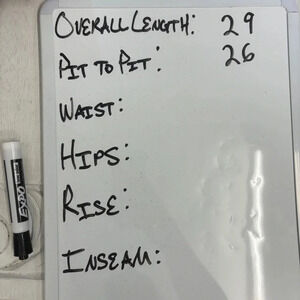 OVERALL LENGTH: 29
PIT TO PIT: 26
WAIST:
HIPS:
RISE:
INSEAM:
EXPO